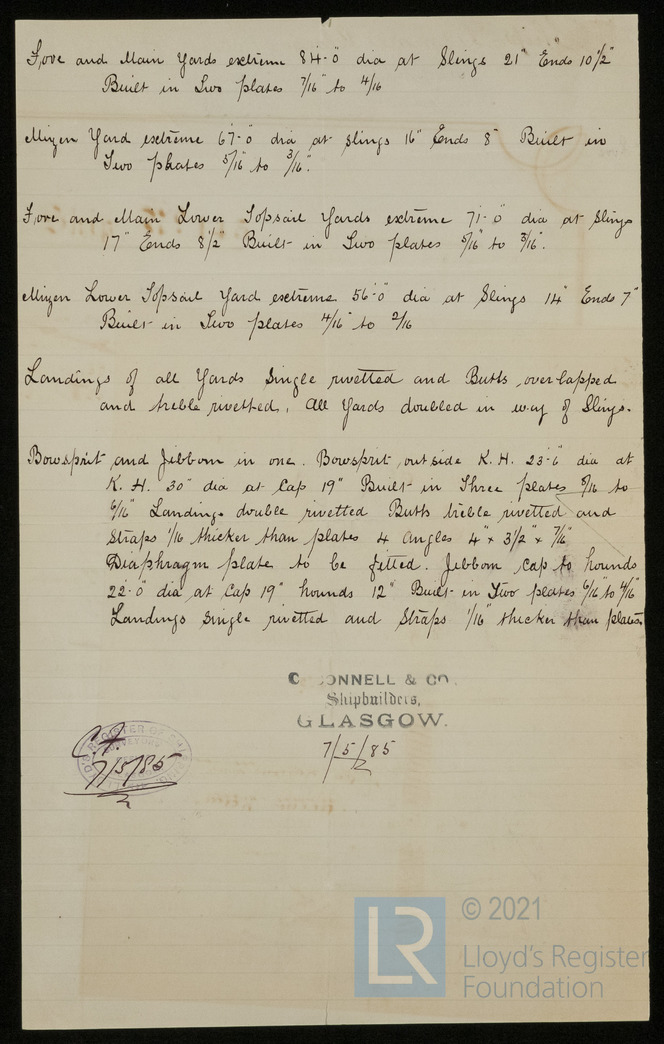 Fore and Main Yards extreme 84-0 dia at Slings 21" Ends 10½"
Built in Two plates 7/16" to 4/16
Mizen Yard extreme 67-0 dia at Slings 16" Ends 8" Built in
Two plates 5/16" to 3/16".
Fore and Main Lower Topsail Yards extreme 71-0 dia at Slings
17" Ends 8½" Built in Two plates 5/16" to 3/16".
Mizen Lower Topsail Yard extreme 56-0 dia at Slings 14" Ends 7"
Built in Two plates 4/16" to 2/16
Landings of all Yards Single rivetted and Butts overlapped
and treble rivetted. All Yards doubled in way of Slings.
Bowsprit and Jibboom in one. Bowsprit outside K.H. 23-6 dia at
K.H. 30" dia at Cap 19" Built in Three plates 8/16 to
6/16" Landings double rivetted Butts treble rivetted and
Straps 1/16 thicker than plates 4 angles 4" x 3½" x 7/16"
Diaphragm plate to be fitted. Jibboom Cap to hounds
22-0 dia at Cap 19" hounds 12" Built in Two plates 6/16" to 4/16"
Landings Single rivetted and Straps 1/16" thicker than plates
ONNELL & CO.
Shipbuilders,
GLASGOW.
7/5/85
7/5/85
LR © 2021
Lloyd's Register
Foundation